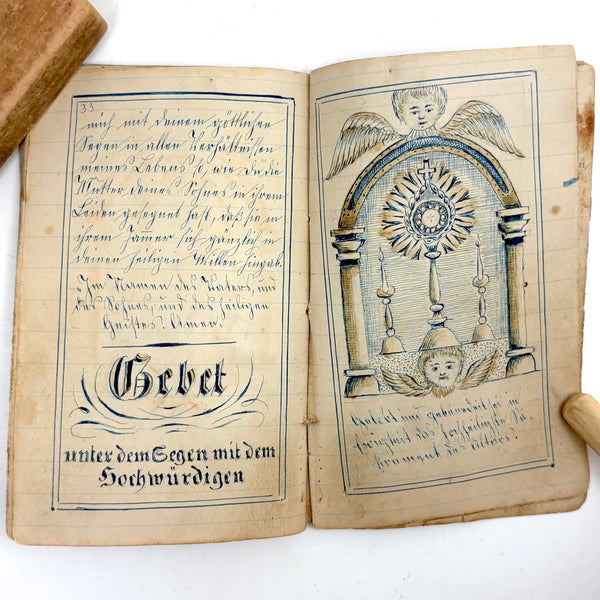 33
mich mit deinem göttlichen
Segen in allen Verhältnissen
meines Lebens so, wie Du die
Mutter deines Sohnes in ihrem
Leiden gesegnet hast, daß sie in
ihrem Jamer sich gänzlich in
deinen heiligen Willen hingab.
Im Namen des Vaters, und
des Sohnes, und des heiligen
Geistes. Amen.
Gebet
unter dem Segen mit dem
Hochwürdigen
Gelobt und gebenedeit sei in
Ewigkeit das hochheiligste Sa-
krament des Altars.